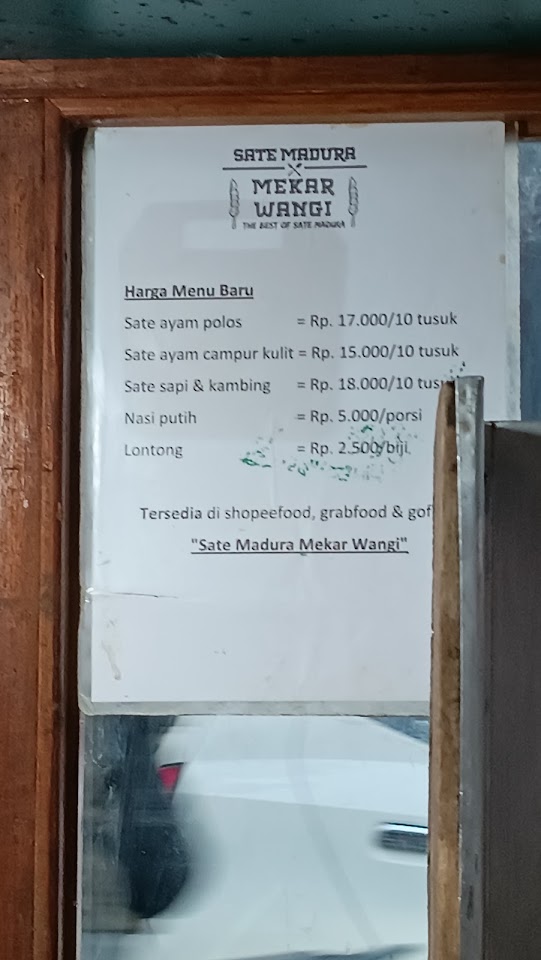 SATE MADURA
MEKAR
WANGI
THE BEST OF SATE MADURA
Harga Menu Baru
Sate ayam polos = Rp. 17.000/10 tusuk
Sate ayam campur kulit = Rp. 15.000/10 tusuk
Sate sapi & kambing = Rp. 18.000/10 tusu
Nasi putih = Rp. 5.000/porsi
Lontong = Rp. 2.500/biji
Tersedia di shopeefood, grabfood & gof
"Sate Madura Mekar Wangi"